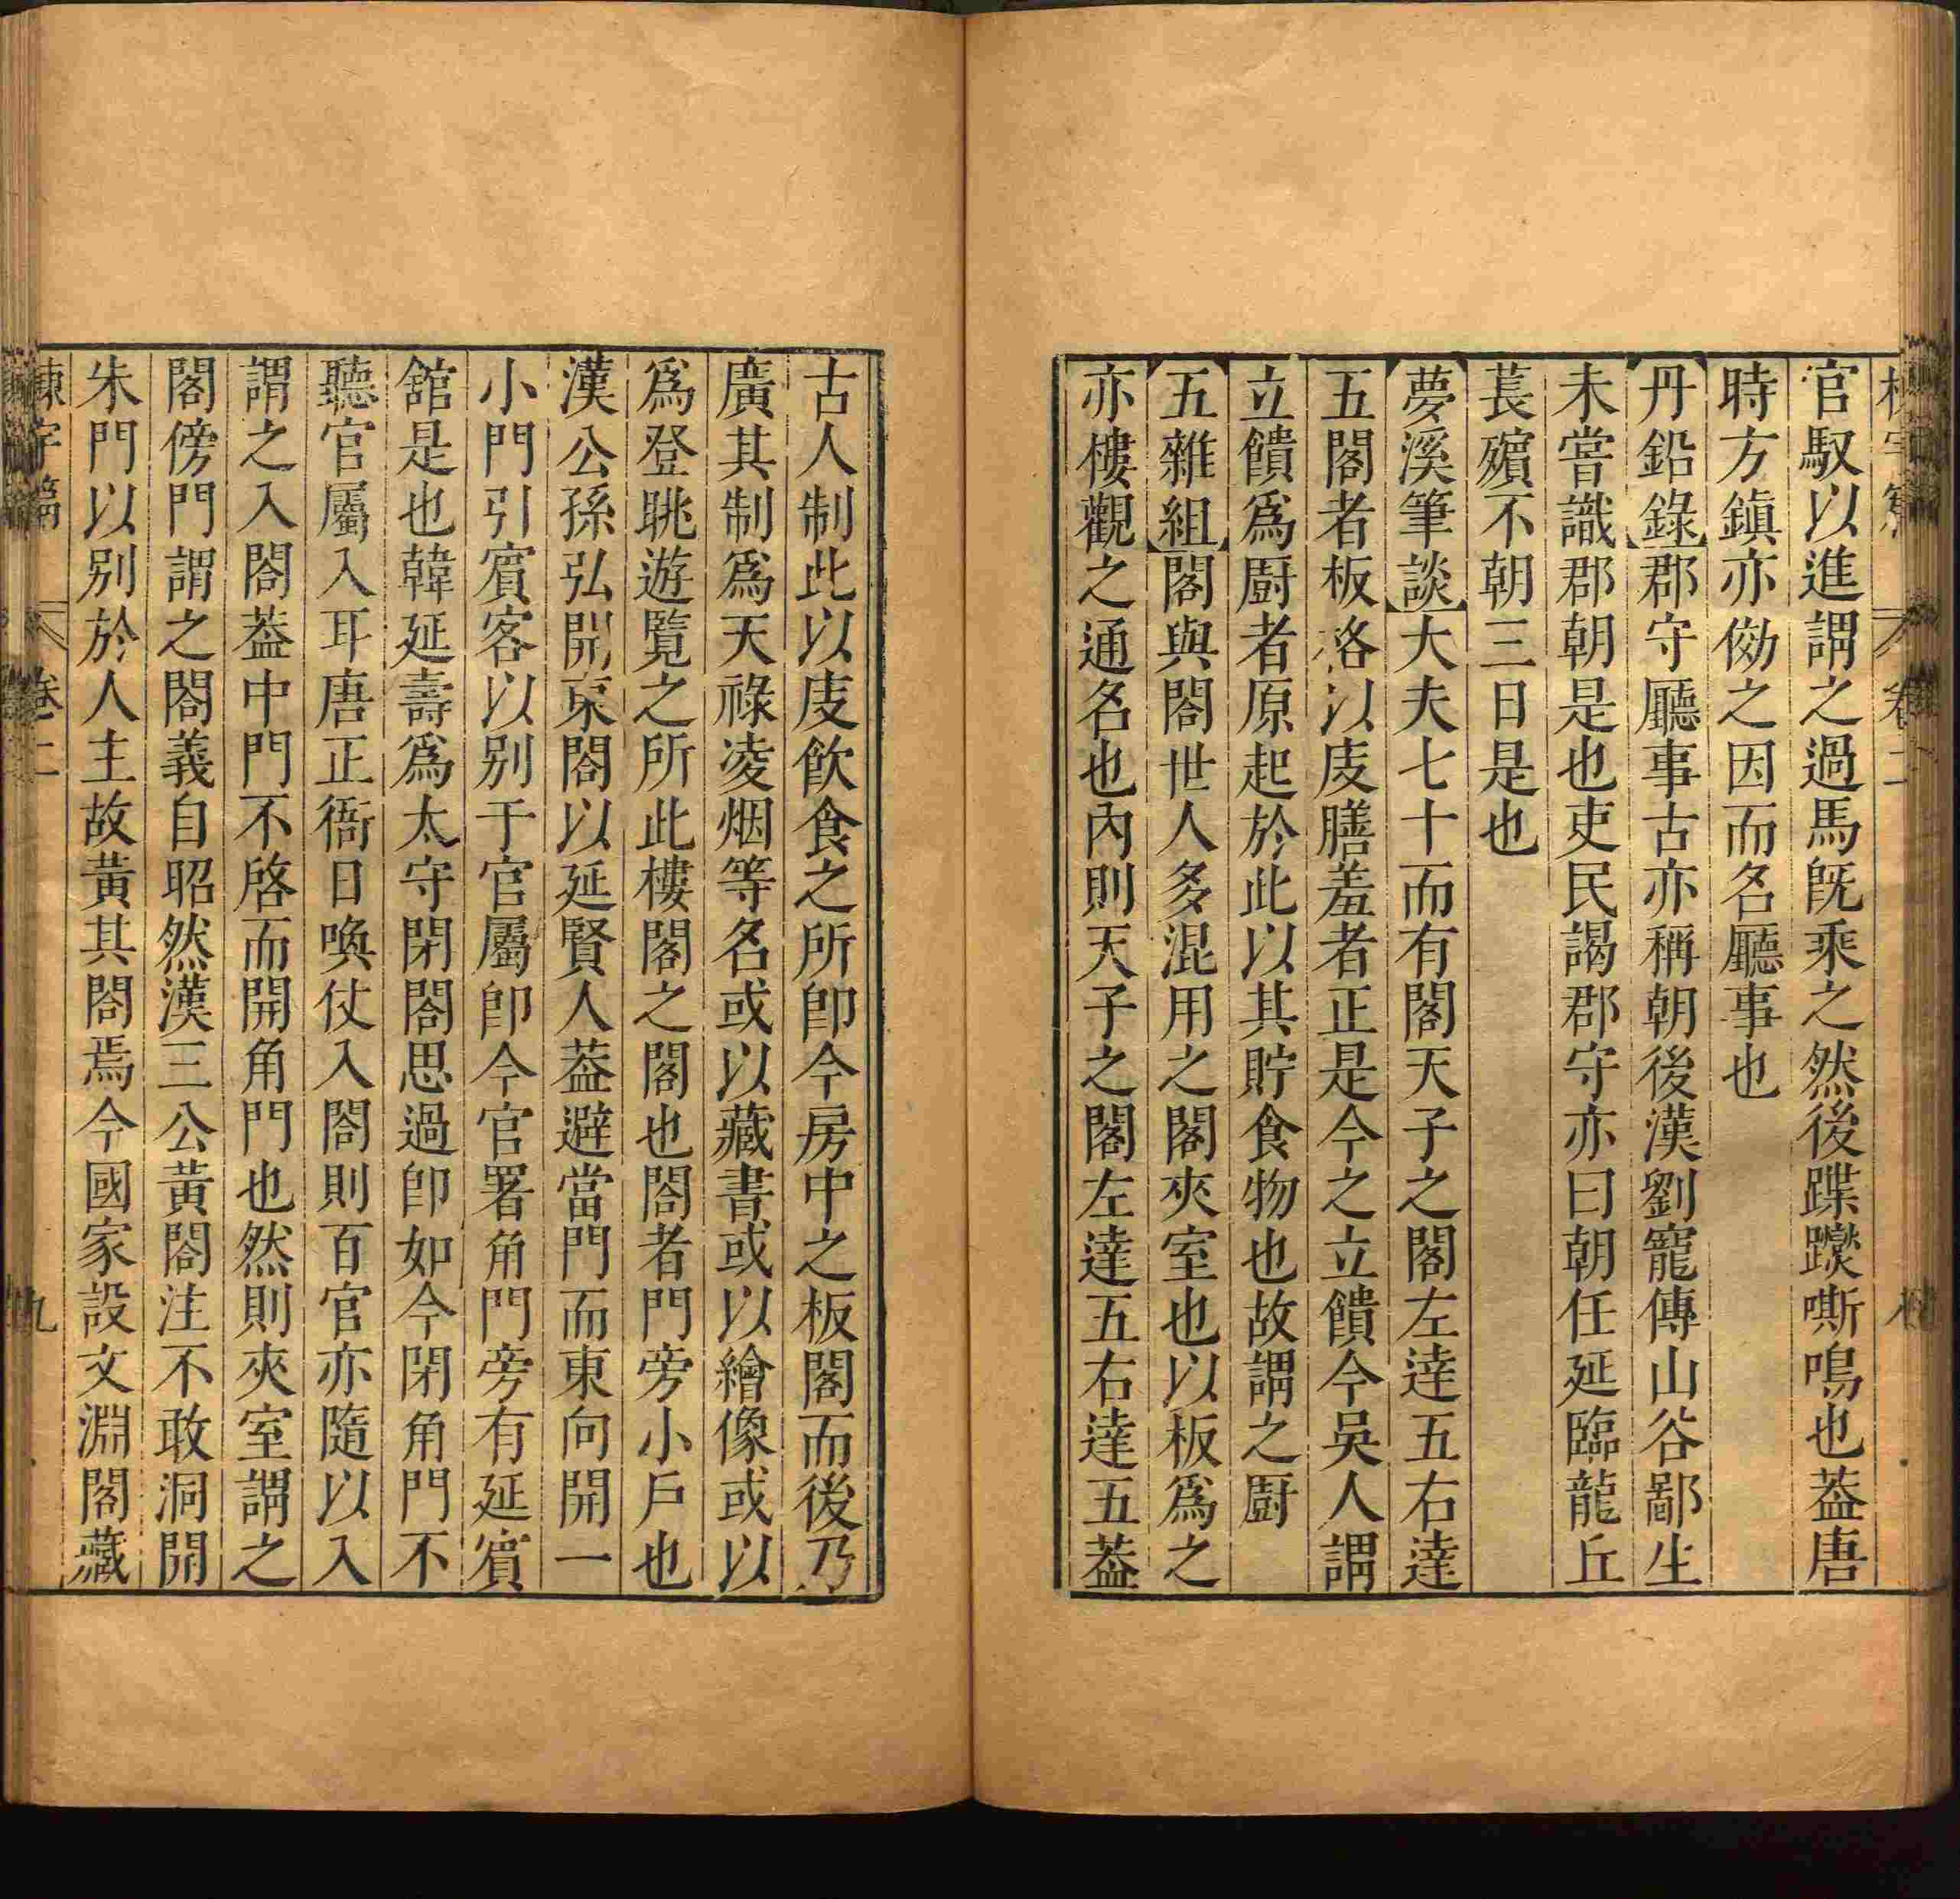 官馭以進謂之過馬旣乘之然後蹀躞嘶鳴也葢唐
時方鎮亦効之因而名廳事也
丹鉛錄郡守廳事古亦稱朝後漢劉寵傳山谷鄙生
未嘗識郡朝是也吏民謁郡守亦曰朝任延臨龍丘
萇殯不朝三日是也
夢溪筆談大夫七十而有閣天子之閣左逹五右達
五閣者板格以庋膳羞者正是今之立饋今吳人謂
立饋爲厨者原起於此以其貯食物也故謂之厨
五雜組閣與閤世人多混用之閣夾室也以板爲之
亦樓觀之通名也內則天子之閣左達五右達五葢
古人制此以庋飲食之所卽今房中之板閣而後乃
廣其制爲天祿凌烟等名或以藏書或以繪像或以
爲登眺遊覽之所此樓閣之閣也閤者門旁小戶也
漢公孫弘開東閤以延賢人葢避當門而東向開一
小門引賓客以別于官屬卽今官署角門旁有延賓
舘是也韓延壽爲太守閉閤思過卽如今閉角門不
聽官屬入耳唐正衙日喚仗入閤則百官亦隨以入
謂之入閤葢中門不啓而開角門也然則夾室謂之
閣傍門謂之閤義自昭然漢三公黃閤注不敢洞開
朱門以別於人主故黃其閤焉今國家設文淵閣藏
卷二
九